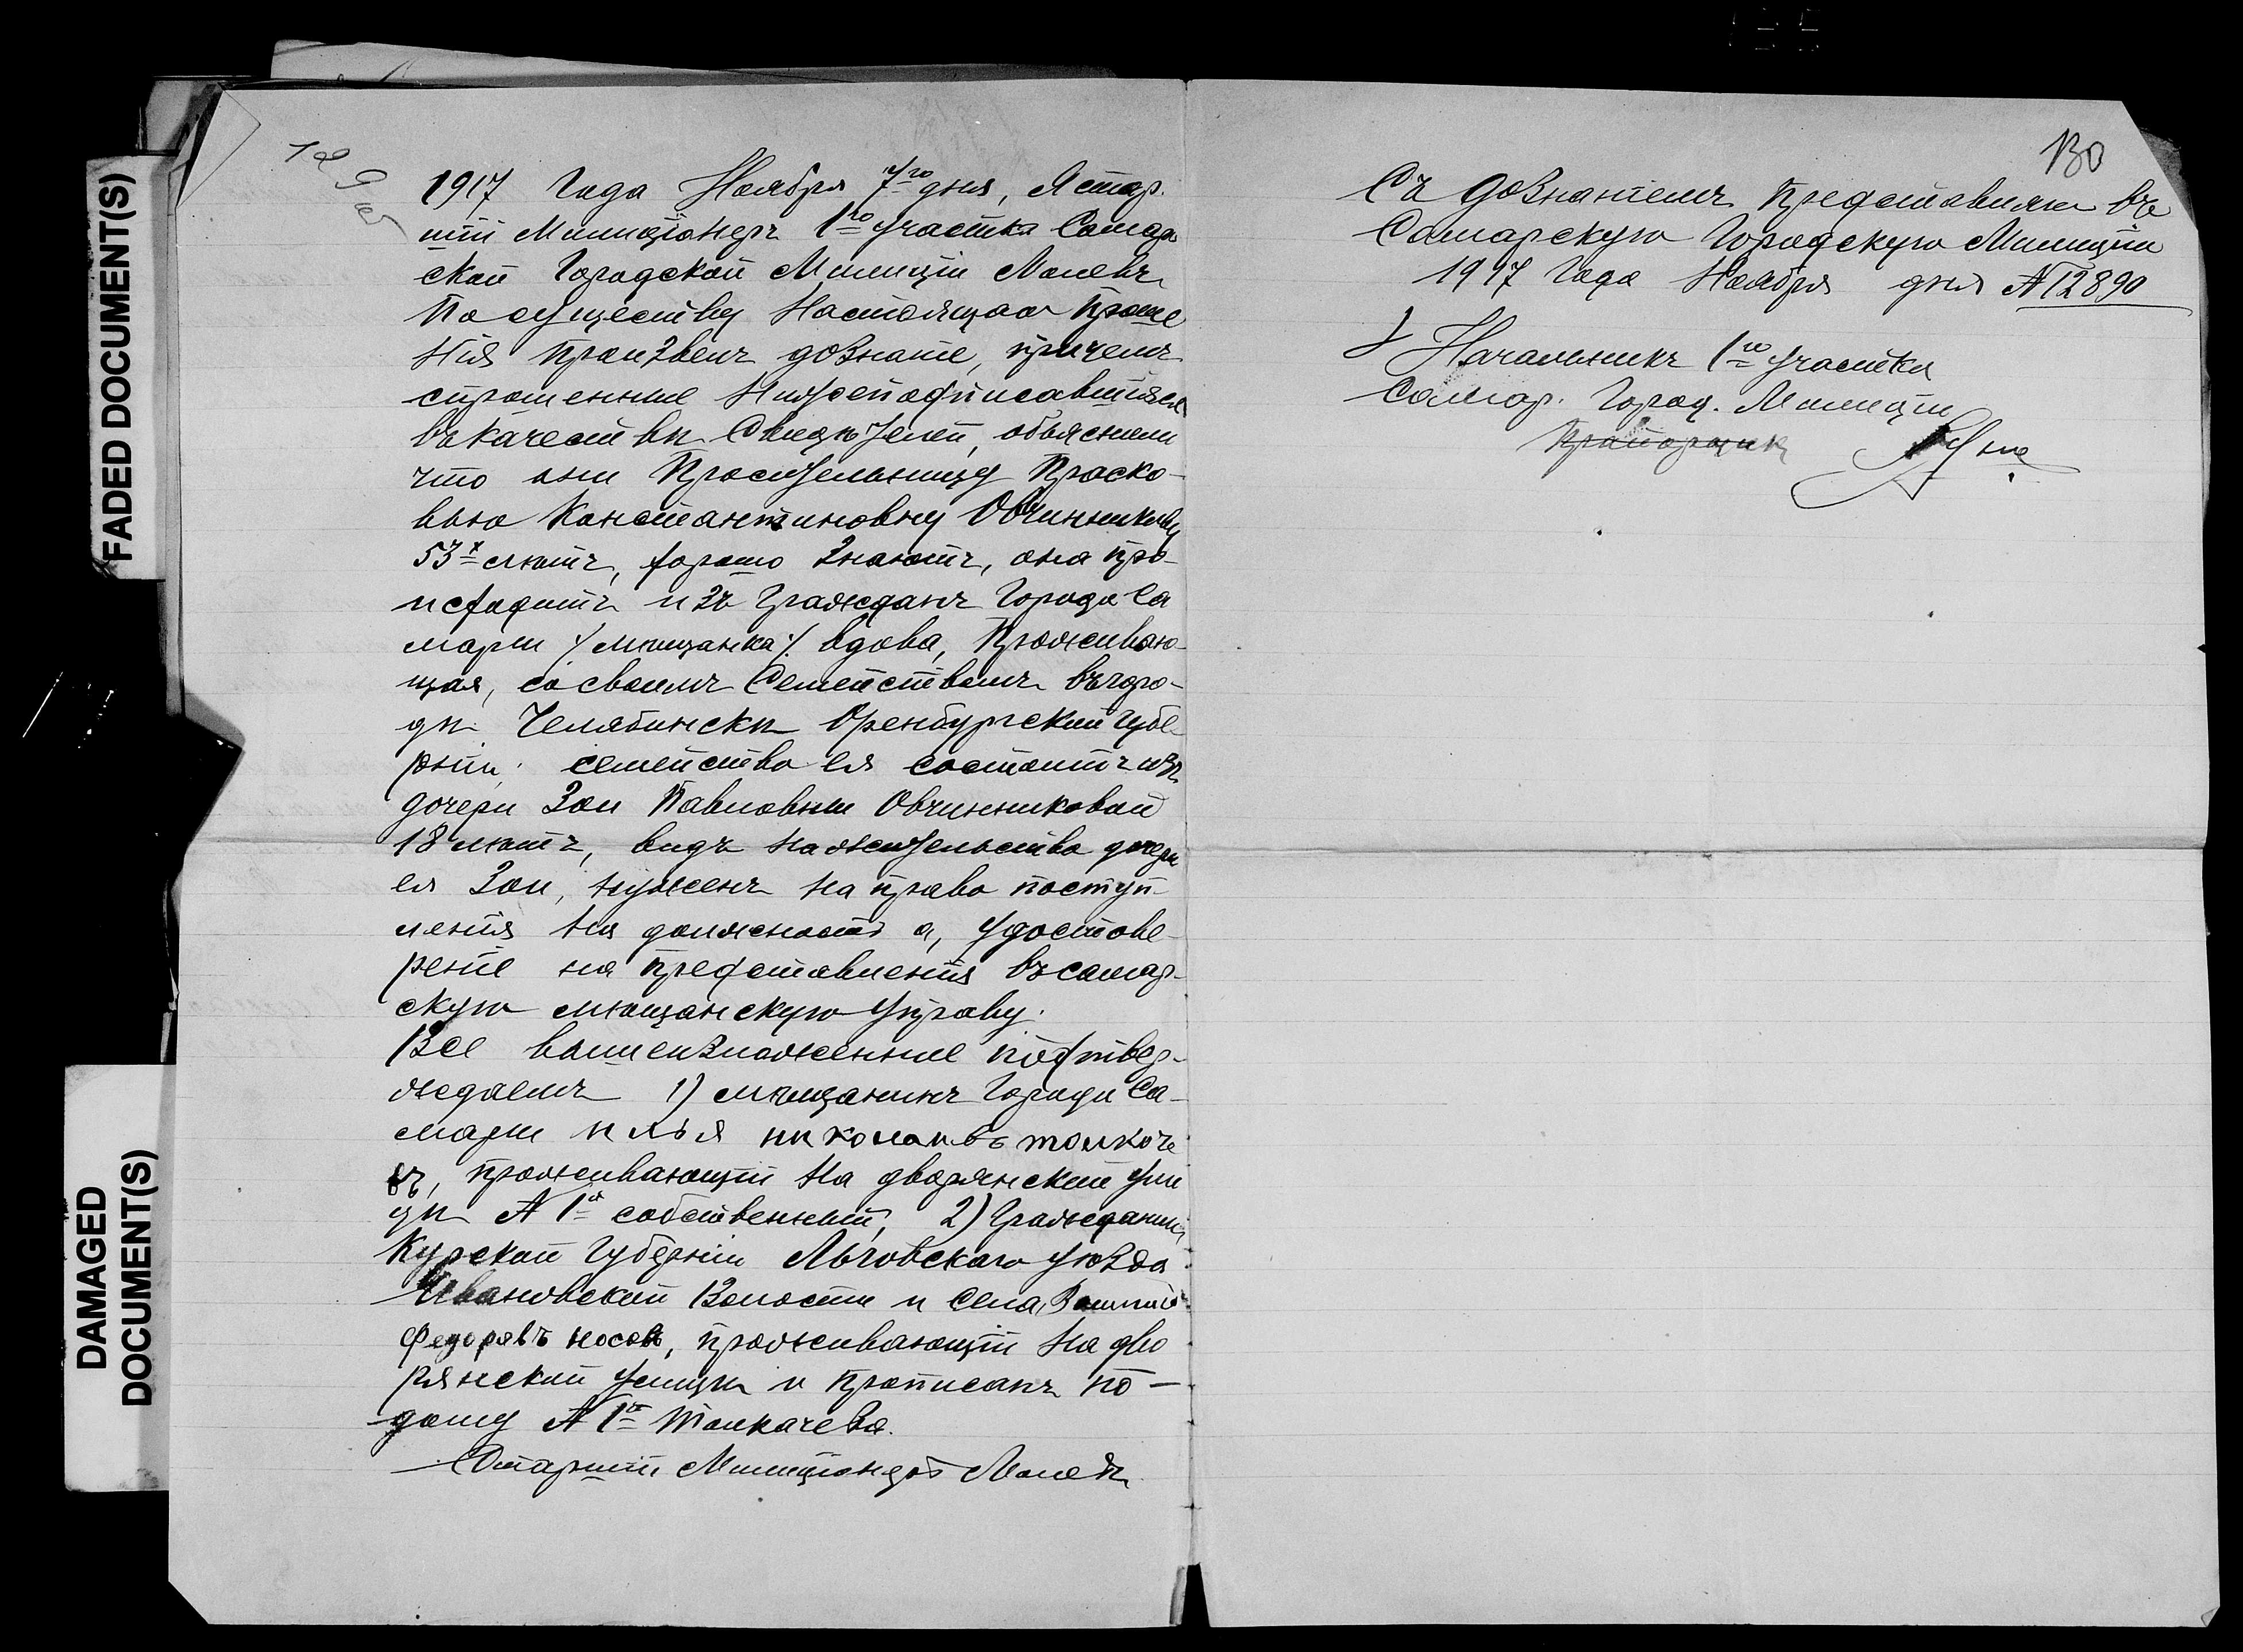 1917 Года Ноября 7го дня, Я стар-
шій Милиціонеръ 1го участка Самар
ской Городской Милиціи Малевъ
По существу Настоящаго Проше
нія Произвелъ дознаніе, причемъ
спрошенные Нижеподписавшіяся
въ качествѣ Свидѣтелей, объяснили
что они Просительницу Праско-
вью Константиновну Овчинникову
53х лѣтъ, хорошо Знаютъ, она про-
исходитъ изъ Гражданъ Города Са
мары /мѣщанка/. вдова, Проживаю-
щая, со своимъ Семействомъ въ горо-
дѣ Челябинскѣ Оренбургской Губе-
рніи; семейство ея состоитъ изъ
дочери Зои Павловны Овчинниковой
18 лѣтъ, видъ на жительство дочери
ея Зои, нуженъ на право поступ-
ленія на должность а, удостове-
реніе на представленія въ самар-
скую мѣщанскую Управу.
Все вышеизложенные подтвер-
ждаемъ 1) мѣщанинъ Города Са-
мары илья николаевъ толкаче
въ, проживающій на дворянской ули
цѣ № 1й собственный, 2) Гражданинъ
Курской Губерніи Льговскаго уѣзда
Ивановской Волости и Села,
Федоравъ носовъ, проживающій на дво
рянской улицѣ и прописанъ по-
дому № 1й Толкачева.
Старшій Милиціонеръ Малевъ
130
Съ дознаніемъ Представляю въ
Самарскую Городскую Милицію
1917 Года Ноября дня № 12890
Начальникъ 1го участка
Самар. Город. Милиціи
Прапорщик
FADED DOCUMENT(S)
DAMAGED
DOCUMENT(S)